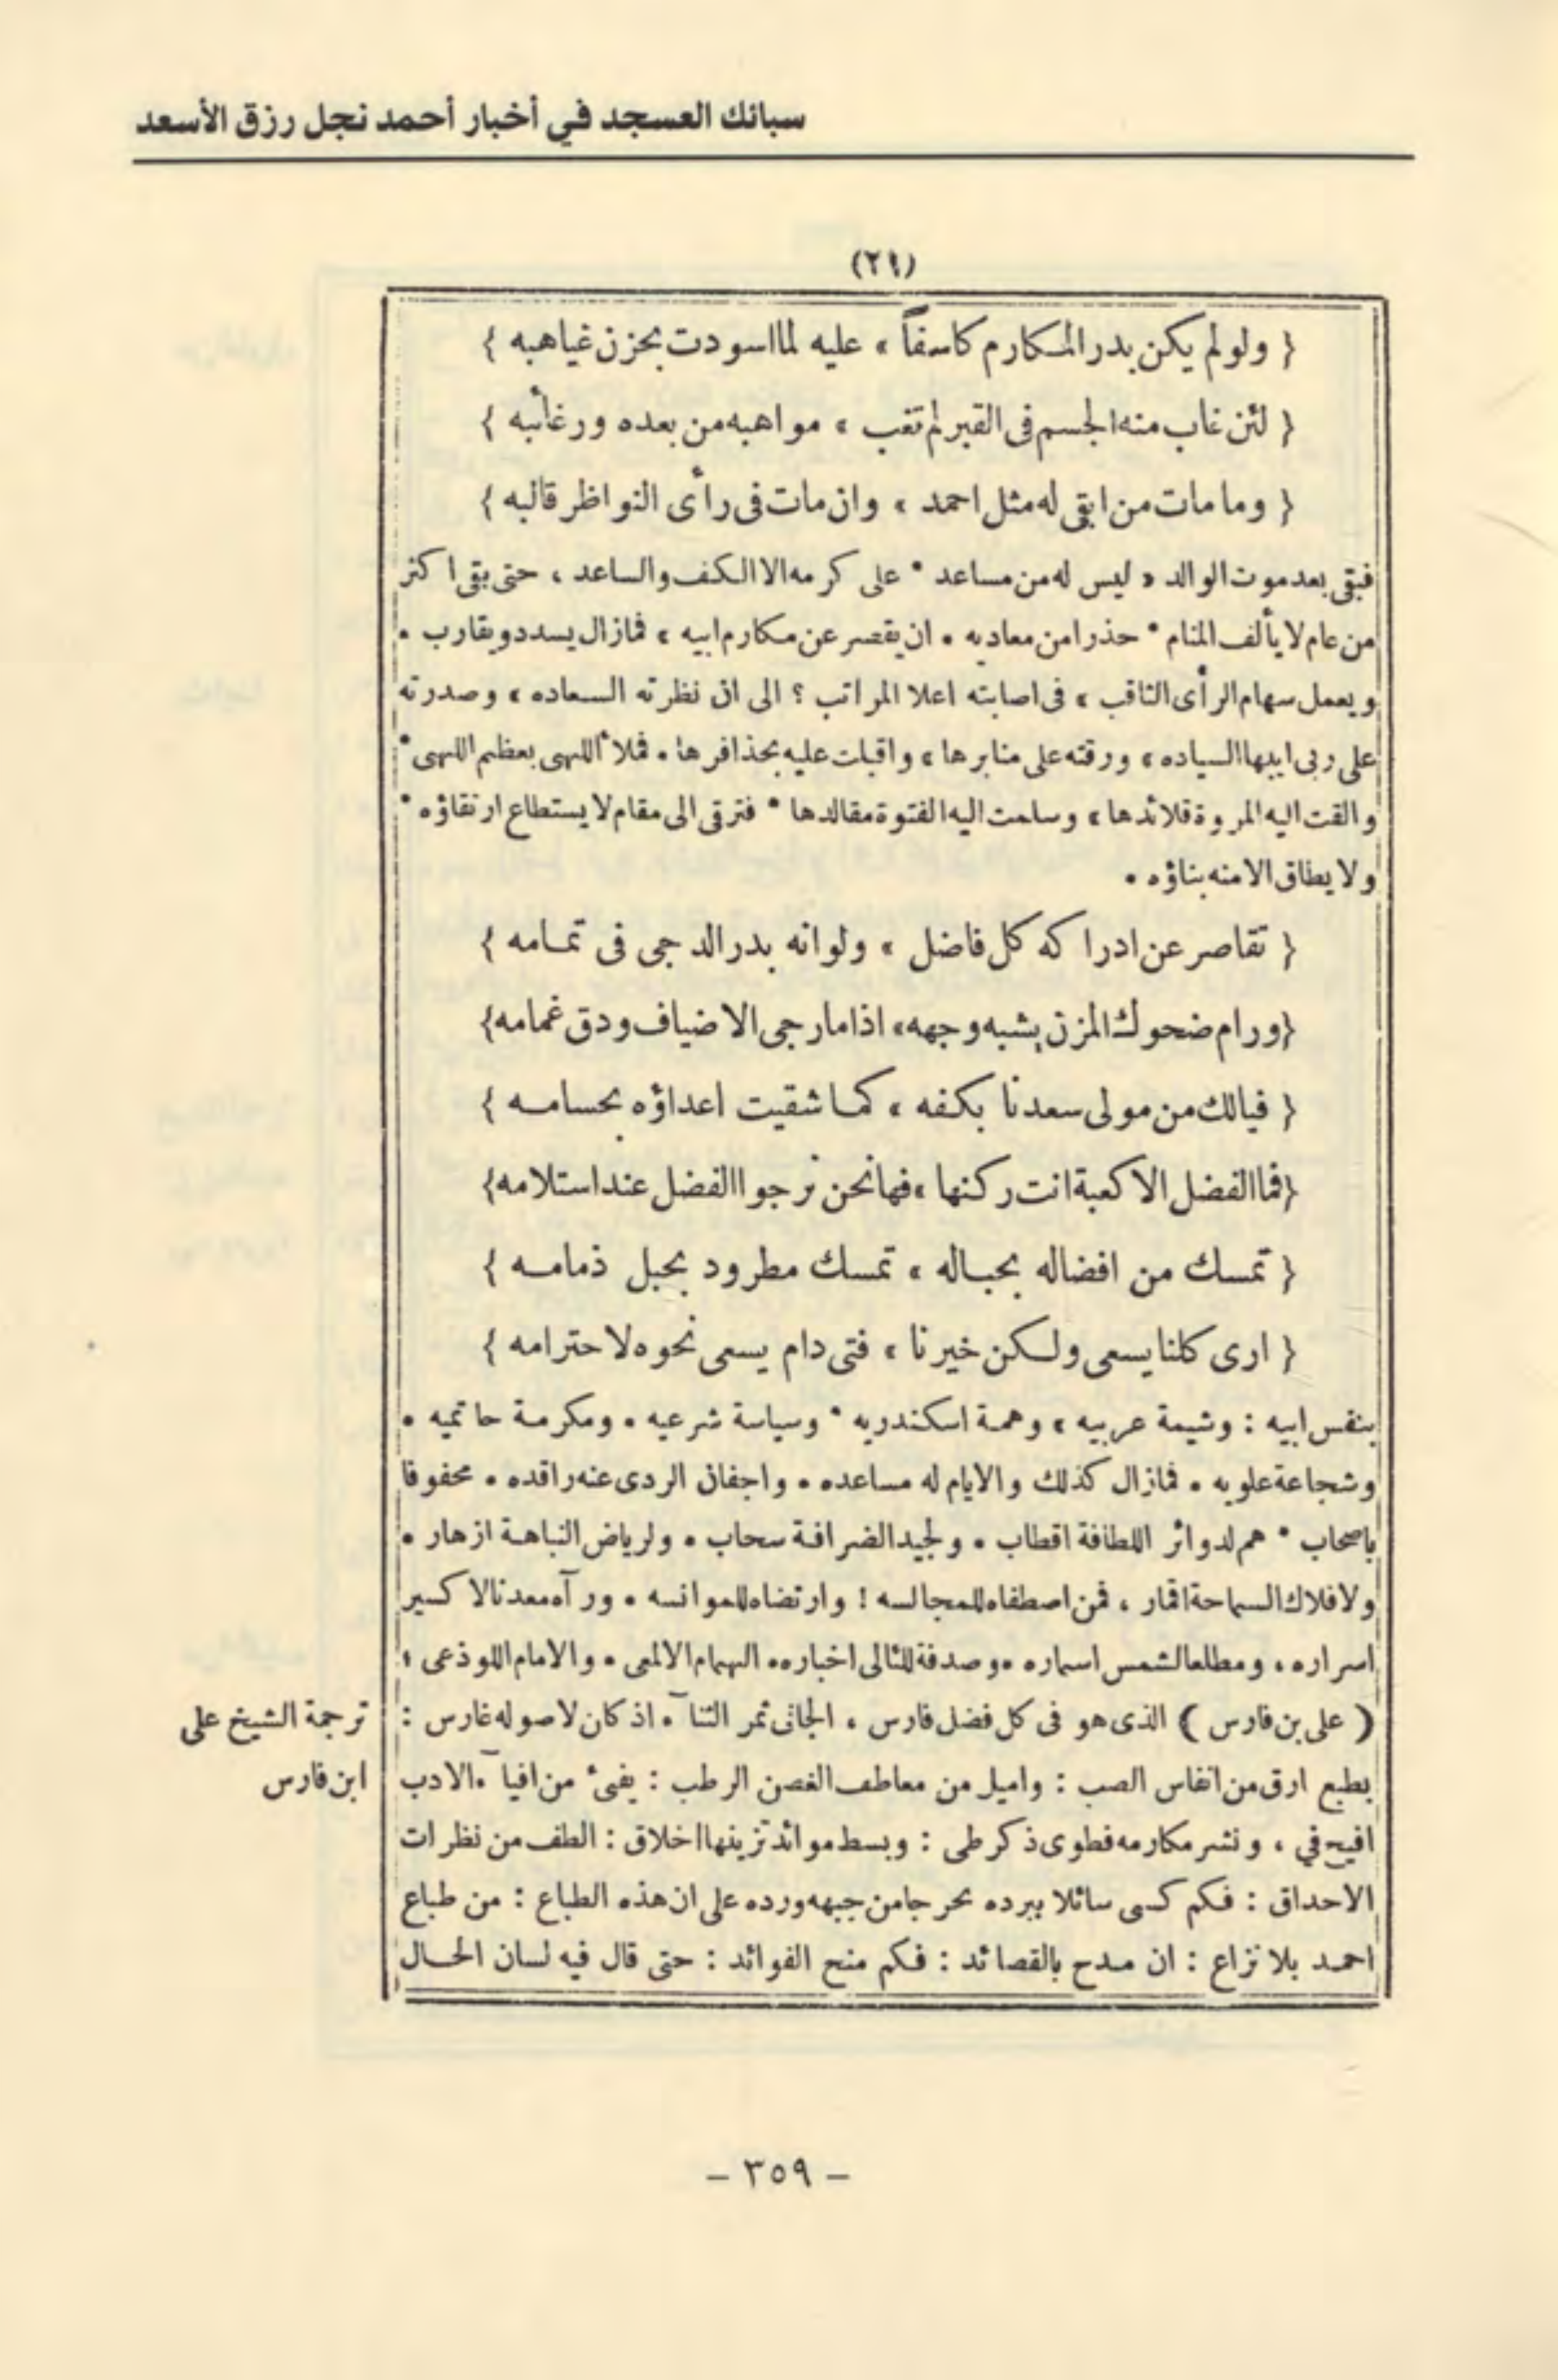 سبائك العسجد في أخبار أحمد نجل رزق الأسعد
(٢٩)
{ ولو لم يكن بدر المكارم كاسفاً » عليه لما اسودت بحزن غياهبه }
{ لئن غاب منه الجسم فى القبر لم تغب » مواهبه من بعده ورغائبه }
{ وما مات من ابقى له مثل احمد » وان مات فى رأى النواظر قالبه }
فبقى بعد موت الوالد « ليس له من مساعد * على كرمه الا الكف والساعد ، حتى بقى اكثر
من عام لا يألف المنام * حذرا من معاديه • ان يقصر عن مكارم ابيه » فما زال يسدد ويقارب •
ويعمل سهام الرأى الثاقب » فى اصابته اعلا المراتب ؟ الى ان نظرته السعاده » وصدرته
على ربى ايديها السياده » ورقته على منابرها » واقبلت عليه بحذافرها • فملأ اللهى بعظيم اللهى *
والقت اليه المروة قلائدها » وسلمت اليه الفتوة مقالدها * فترقى الى مقام لا يستطاع ارتقاؤه *
ولا يطاق الا منه بناؤه •
{ تقاصر عن ادراكه كل فاضل » ولو انه بدر الدجى فى تمامه }
{ ورام ضحوك المزن يشبه وجهه » اذا ما رجى الاضياف ودق غمامه }
{ فيالك من مولى سعدنا بكفه » كما شقيت اعداؤه بحسامه }
{ فما الفضل الا كعبة انت ركنها » فها نحن نرجوا الفضل عند استلامه }
{ تمسك من افضاله بحباله » تمسك مطرود بحبل ذمامه }
{ ارى كلنا يسعى ولكن خيرنا » فتى دام يسعى نحوه لاحترامه }
بنفس ابيه : وشيمة عربيه » وهمة اسكندريه * وسياسة شرعيه • ومكرمة حاتميه •
وشجاعة علويه • فما زال كذلك والايام له مساعده • واجفان الردى عنه راقده • محفوفا
باصحاب * هم لدوائر اللطافة اقطاب • ولجيد الضرافة سحاب • ولرياض النباهة ازهار •
ولافلاك السماحة اقمار ، فمن اصطفاه للمجالسه ! وارتضاه للموانسه • ورآه معدنا لاكسير
اسراره ، ومطلعا لشمس اسماره • وصدفة للئالى اخباره • الهمام الالمعى • والامام اللوذعى ؛
( على بن فارس ) الذى هو فى كل فضل فارس ، الجانى ثمر الثنآء • اذ كان لاصوله غارس :
ترجمة الشيخ على
ابن فارس
بطبع ارق من انفاس الصب : واميل من معاطف الغصن الرطب : يفىء من افيآء الادب
افيح في ، ونشر مكارمه فطوى ذكر طى : وبسط موائد تزينها اخلاق : الطف من نظرات
الاحداق : فكم كسى سائلا ببرده بحر جا من جبهه ورده على ان هذه الطباع : من طباع
احمد بلا نزاع : ان مدح بالقصائد : فكم منح الفوائد : حتى قال فيه لسان الحال
– ٣٥٩ –